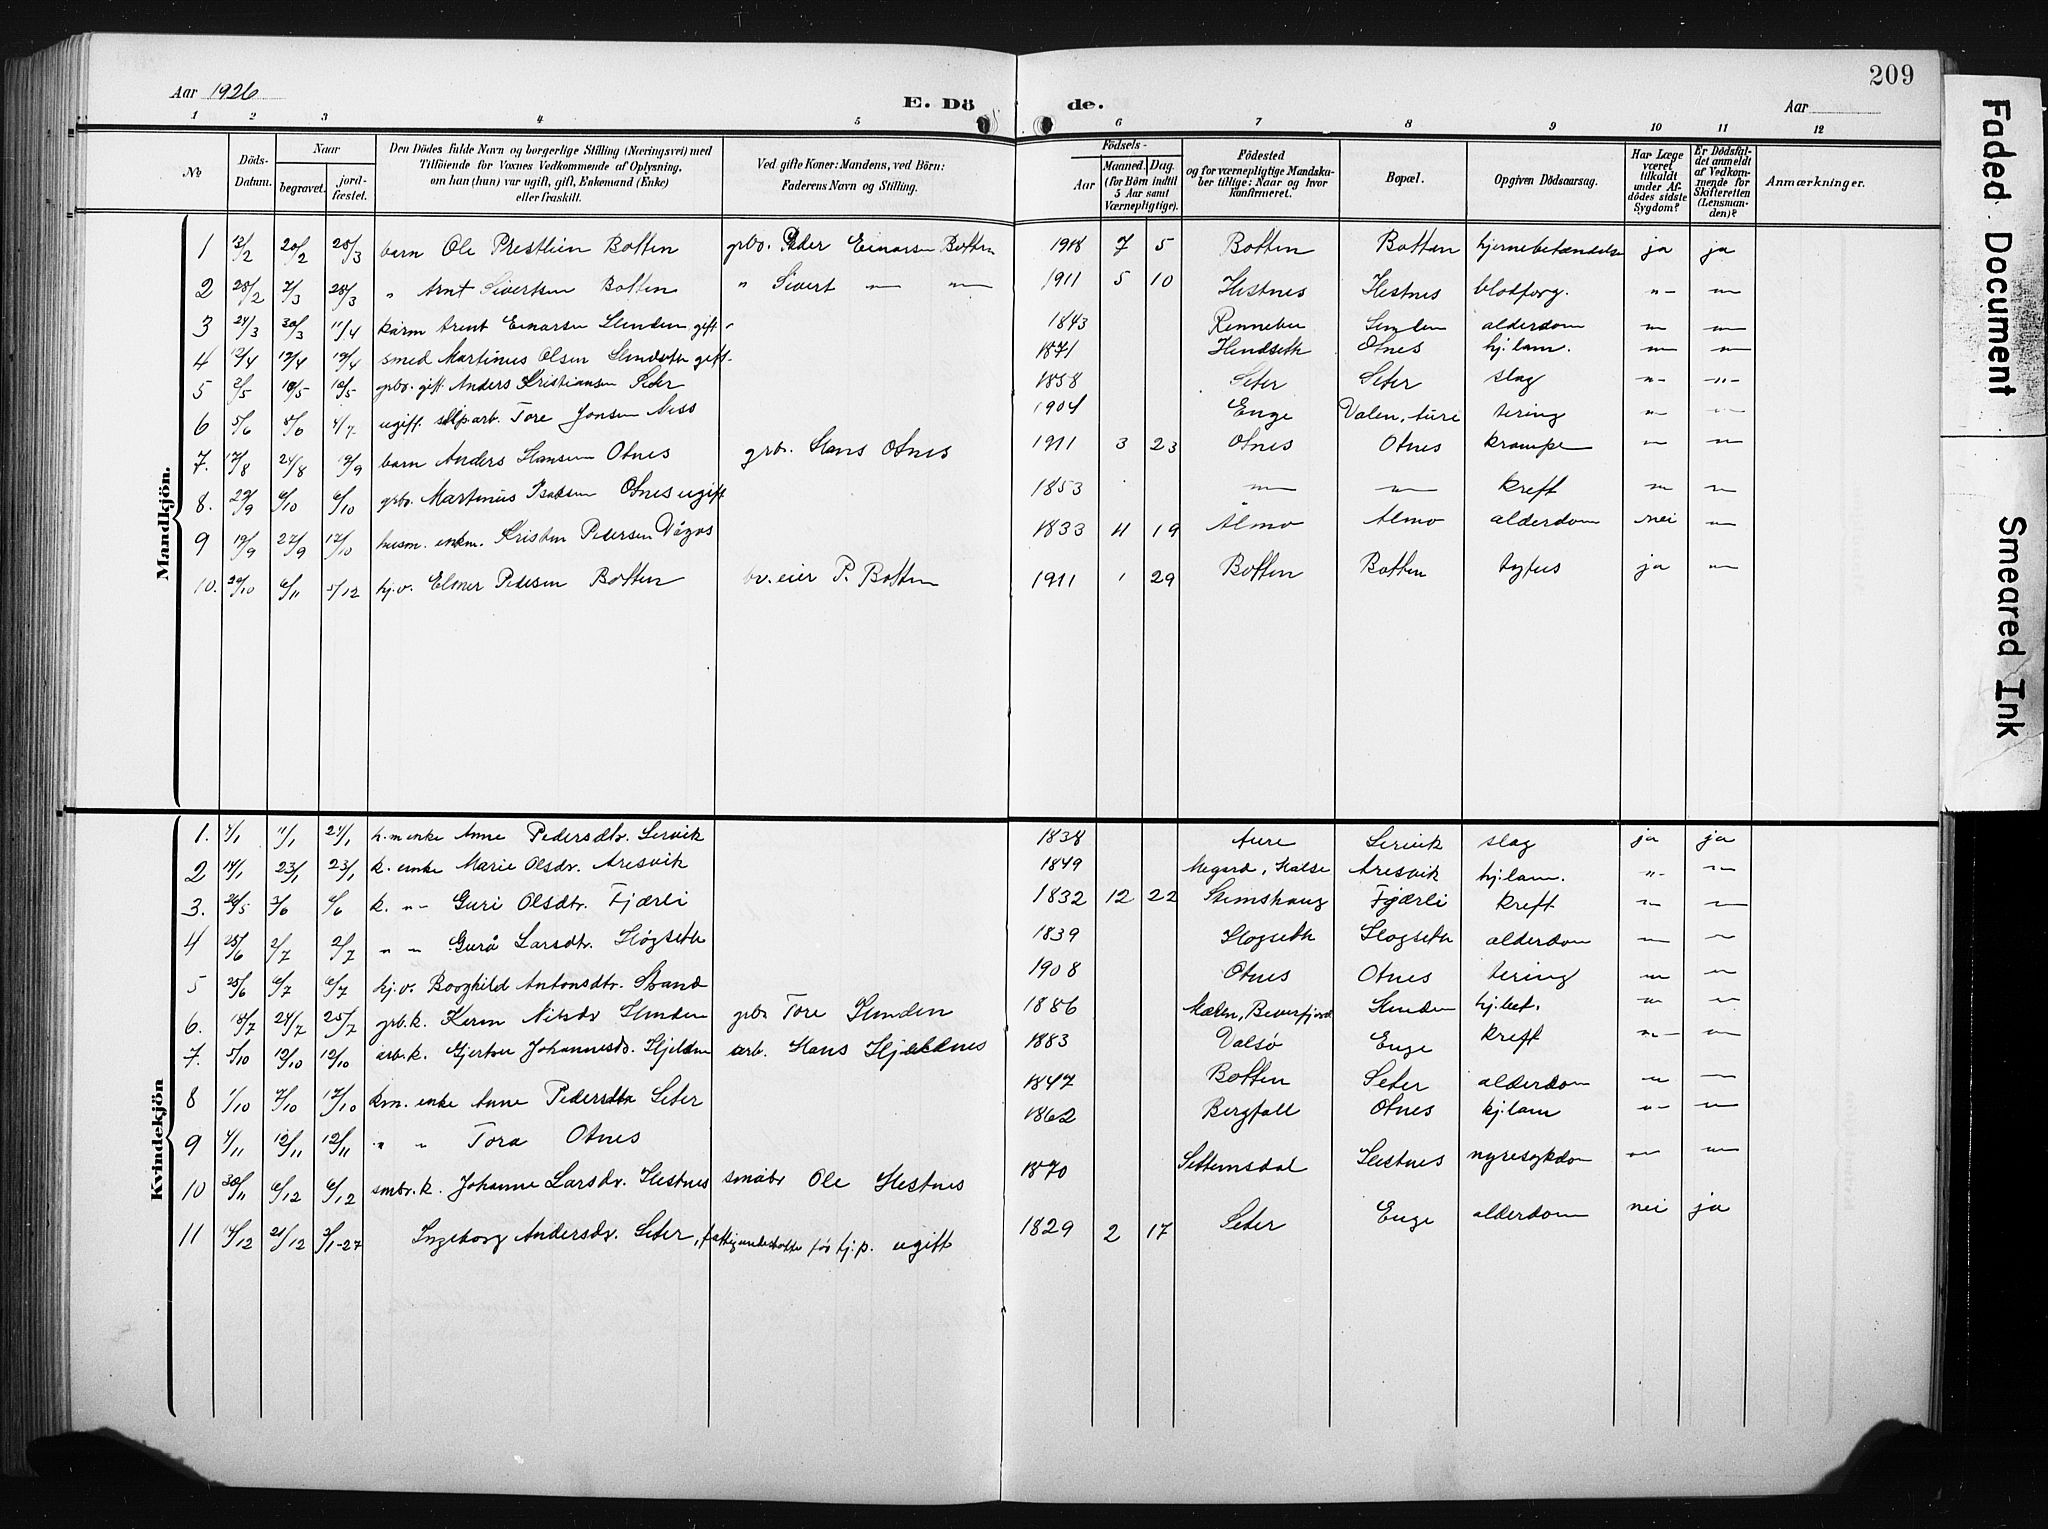 209
Aar 1926
E. Dö de.
Aar
1 2 3 4 5 6 7 8 9 10 11 12
No
Döds-Datum.
Naar
begravet.
jordfæstet.
Den Dödes fulde Navn og borgerlige Stilling (Næringsvei) med
Tilföiende for Voxnes Vedkommende af Oplysning,
om han (hun) var ugift, gift, Enkemand (Enke)
eller fraskilt.
Ved gifte Koner: Mandens, ved Börn:
Faderens Navn og Stilling.
Födsels-
Aar
Maaned. Dag.
(for Börn indtil
5 Aar samt
Værnepligtige).
Födested
og for værnepligtige Mandska-
ber tillige: Naar og hvor
konfirmeret.
Bopæl.
Opgiven Dödsaarsag.
Har Læge
været
tilkaldt
under Af-
dödes sidste
Sygdom?
Er Dödsfal-
det anmeldt
af Vedkom-
mende for
Skifteretten
(Lensman-
den)?
Anmærkninger.
Mandkjön.
1 13/2 20/2 28/3 barn Ole Prestlien Botten grbr. Peder Einarsen Botten 1918 7 5 Botten Botten hjernebetændelse ja ja
2 25/2 7/3 28/3 " Arnt Sivertsen Botten " Sivert — — 1911 5 10 Hestnes Hestnes blodforg. "- —
3 24/3 30/3 11/4 kårm Arent Einarsen gift 1843 Rennebu alderdom — —
4 12/4 19/4 19/4 smed Martinus Olsen gift 1871 Otnes hj.lam. — —
5 2/5 10/5 10/5 grbr. gift Anders Kristiansen Seter 1858 Seter Seter slag "- "-
6 5/6 4/7 ugift Tore Jonsen Ness 1904 Enge Valen, Aure tering "- —
7. 17/8 24/8 19/9 barn Anders Hansen Otnes grbr. Hans Otnes 1911 3 23 Otnes Otnes krampe — —
8. 29/9 6/10 6/10 grbr. Martinus Otnes ugift 1853 — — kreft — —
9 19/9 27/9 17/10 husm. enkm. Kristen Pedersen Vågos 1833 11 19 Almo Almo alderdom nei —
10. 29/10 6/11 5/12 hj.v. Elmer Pedersen Botten br.eier P. Botten 1911 1 29 Botten Botten tyfus ja —
Kvindekjön
1. 4/1 11/1 24/1 h.m enke Anne Pedersdtr. Servik 1838 Aure Servik slag ja ja
2 14/1 23/1 23/1 k. enke Marie Olsdr. Aresvik 1849 Megard, Halse Aresvik hj.lam. "- —
3. 26/5 3/6 6/6 k. "- Guri Olsdtr. Fjærli 1832 12 22 Stimshaug Fjærli kreft — —
4 25/6 2/7 2/7 " " Gurå Larsdtr. Høgseth 1839 Hogseth Hogseth alderdom — —
5 25/6 6/7 6/7 hj.v. Borghild Antonsdtr. Strand 1908 Otnes Otnes tering — —
6. 18/7 24/7 25/7 grb.k. Karen Nilsdr Henden grbr Tore Henden 1886 Mælen, Beverfjord Henden hj.bet. — —
7. 5/10 12/10 12/10 arb.k. Gjertru Johannesdr. Hjelnes arb. Hans Hjelnes 1883 Valsø Enge kreft "- —
8 1/10 7/10 17/10 krm. enke Anne Pedersdtr Seter 1847 Botten Seter alderdom — —
9 4/11 12/11 12/11 " " Tora Otnes 1862 Bergfall Otnes hj.lam "- —
10 30/11 6/12 6/12 smbr.k. Johanne Larsdr. Hestnes småbr Ole Hestnes 1870 Settemsdal Hestnes nyresykdom — —
11 14/12 21/12 3/1-27 Ingeborg Andersdr. Seter, fattigunderstøtte før hj.p. ugift 1829 2 17 Seter Enge alderdom nei ja
Faded Document
Smeared Ink